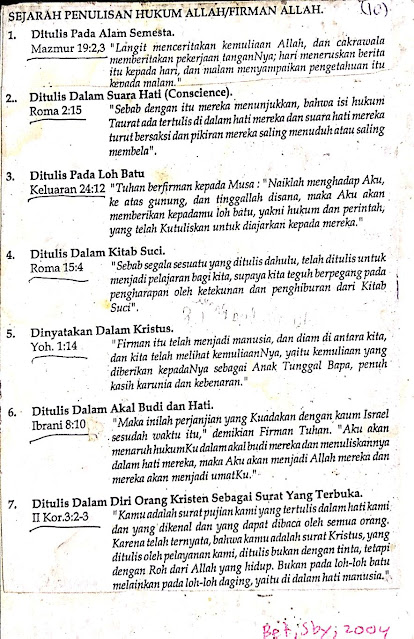 SEJARAH PENULISAN HUKUM ALLAH/FIRMAN ALLAH. (10)
1. Ditulis Pada Alam Semesta.
Mazmur 19:2,3 "Langit menceritakan kemuliaan Allah, dan cakrawala
memberitakan pekerjaan tanganNya; hari meneruskan berita
itu kepada hari, dan malam menyampaikan pengetahuan itu
kepada malam."
2.. Ditulis Dalam Suara Hati (Conscience).
Roma 2:15 "Sebab dengan itu mereka menunjukkan, bahwa isi hukum
Taurat ada tertulis di dalam hati mereka dan suara hati mereka
turut bersaksi dan pikiran mereka saling menuduh atau saling
membela".
3. Ditulis Pada Loh Batu
Keluaran 24:12 "Tuhan berfirman kepada Musa : "Naiklah menghadap Aku,
ke atas gunung, dan tinggallah disana, maka Aku akan
memberikan kepadamu loh batu, yakni hukum dan perintah,
yang telah Kutuliskan untuk diajarkan kepada mereka."
4. Ditulis Dalam Kitab Suci.
Roma 15:4 "Sebab segala sesuatu yang ditulis dahulu, telah ditulis untuk
menjadi pelajaran bagi kita, supaya kita teguh berpegang pada
pengharapan oleh ketekunan dan penghiburan dari Kitab
Suci".
5. Dinyatakan Dalam Kristus.
Yoh. 1:14 "Firman itu telah menjadi manusia, dan diam di antara kita,
dan kita telah melihat kemuliaanNya, yaitu kemuliaan yang
diberikan kepadaNya sebagai Anak Tunggal Bapa, penuh
kasih karunia dan kebenaran."
6. Ditulis Dalam Akal Budi dan Hati.
Ibrani 8:10 "Maka inilah perjanjian yang Kuadakan dengan kaum Israel
sesudah waktu itu," demikian Firman Tuhan. "Aku akan
menaruh hukumKu dalam akal budi mereka dan menuliskannya
dalam hati mereka, maka Aku akan menjadi Allah mereka dan
mereka akan menjadi umatKu."
7. Ditulis Dalam Diri Orang Kristen Sebagai Surat Yang Terbuka.
II Kor.3:2-3 "Kamu adalah surat pujian kami yang tertulis dalam hati kami
dan yang dikenal dan yang dapat dibaca oleh semua orang.
Karena telah ternyata, bahwa kamu adalah surat Kristus, yang
ditulis oleh pelayanan kami, ditulis bukan dengan tinta, tetapi
dengan Roh dari Allah yang hidup. Bukan pada loh-loh batu
melainkan pada loh-loh daging, yaitu di dalam hati manusia."
Bet; Sby; 2004